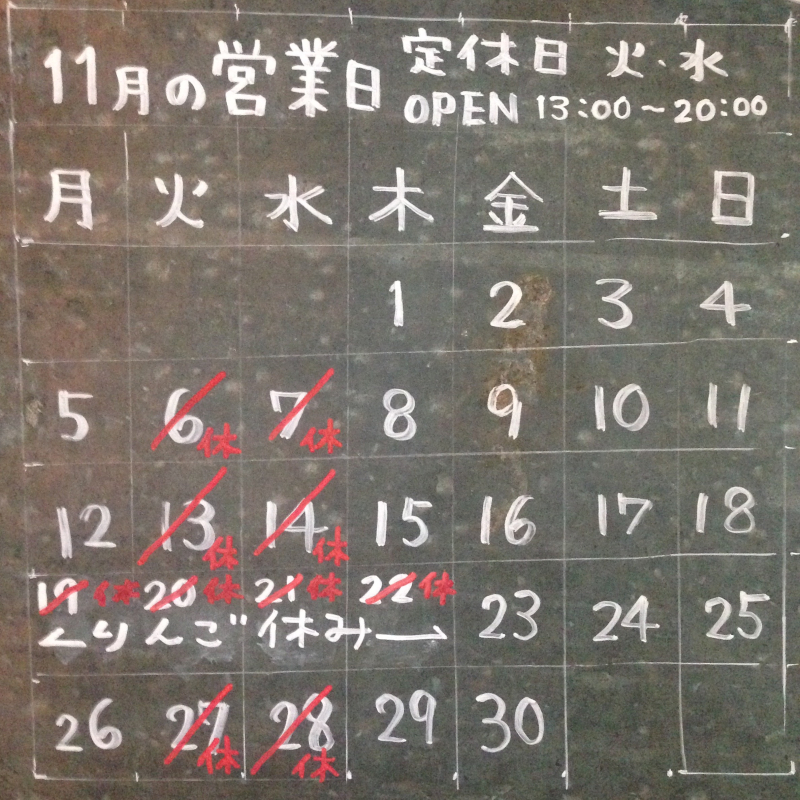 11月の営業日
定休日 火・水
OPEN 13:00〜20:00
月 火 水 木 金 土 日
1 2 3 4
5 6休 7休 8 9 10 11
12 13休 14休 15 16 17 18
19休 20休 21休 22休 23 24 25
←りんご休み→
26 27休 28休 29 30